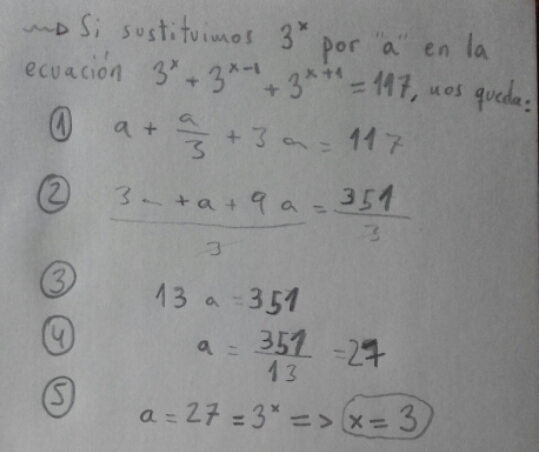 ⟿ Si sustituimos 3^x por "a" en la
ecuación 3^x + 3^(x-1) + 3^(x+1) = 117, nos queda:
① a + a/3 + 3a = 117
② (3a + a + 9a)/3 = 351/3
③ 13a = 351
④ a = 351/13 = 27
⑤ a = 27 = 3^x => x = 3